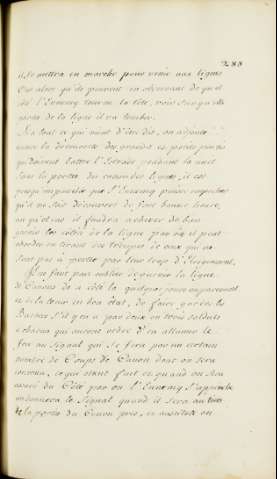 288
il se mettra en marche pour venir aux lignes
C'est alors qu'ils peuvent en observant de quel
côté l'Ennemy tourne la tête, voir sur quelle
partie de la ligne il va tomber.
Si à tout ce qui vient d'être dit, on ajoute
encore la découverte des grands et petits partis
qui doivent battre l'Estrade pendant la nuit
sous la portée du canon des lignes, il est
presqu'impossible que l'Ennemy puisse empêcher
qu'il ne soit découvert de fort bonne heure,
auquel cas il faudra achever de bien
garnir les côtés de la ligne par où il peut
aborder en tirant des troupes de ceux qui ne
sont pas à portée par leur trop d'Eloignement.
Il ne faut pas oublier de garnir la ligne
de Canons de à côté la
et de la tenir en bon état, de faire garder les
Buchers s'il y en a par deux ou trois soldats
à chacun qui auront ordre d'en allumer le
feu au signal qui se fera par un certain
nombre de Coups de Canon dont on sera
convenu, ce qui étant fait et quand on sera
assuré du Côté par où l'Ennemy s'approche
on donnera le signal quand il sera au
de la portée du Canon près, et ensuite on